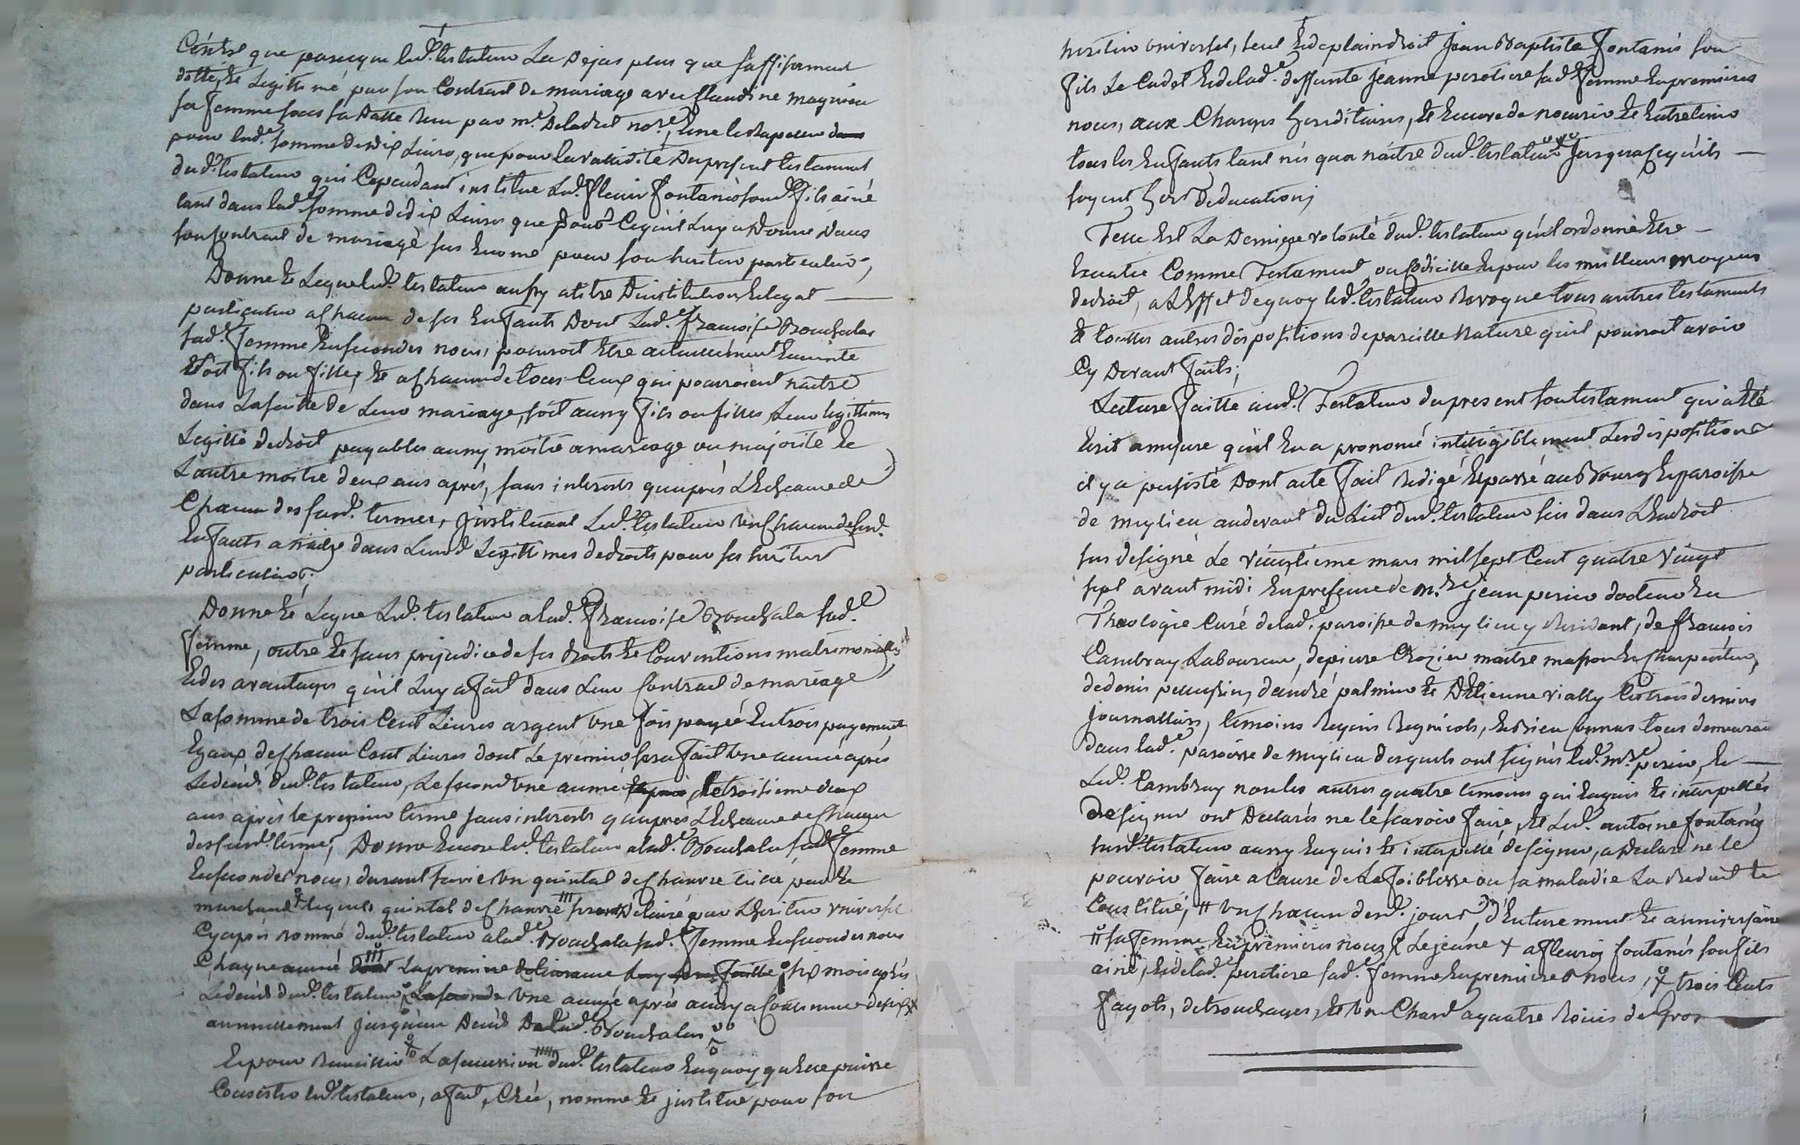 que parceque led. testateur La Dejas plus que suffisament
dotté et Legittimé par son Contract De mariage avec Claudine magnieu
sa femme sous sa Datte Reçu par me Deladret nore,
pour lad.e somme de dix Livres, que pour la validité Du present testament
dud. testateur qui Cependant institue Led. fleury fontanés sond. fils ainé
tant dans lad.e somme de dix Livres que pour Ce qu'il Luy a Donné Dans
son Contract de mariage sus Enoncé pour son heritier particulier,
Donne et Legue led. testateur aussy a titre D'institution et legat
particulier a chacun de ses Enfants Dont Lad.e françoise Bouchalas
sad. femme En secondes noces, pourroit Etre actuellement Enceinte
soit fils ou fille, et a chacun de tous Ceux qui pourroient naitre
dans La suitte de Leur mariage, soit aussy fils ou filles Leur legittime
Legitte de droit payables aussy moitié a mariage ou majorité et
L'autre moitié deux ans après, sans interests qu'après L'Echeance de
Chacun des susd. termes, justituant Led. testateur un chacun de sesd.
Enfants a naitre dans Leursd. Legittimes de droits pour ses heritiers
particuliers;
Donne Et Legue Led. testateur a lad.e françoise Bouchala sad.e
femme, outre et sans prejudice de ses droits et Conventions matrimoniales
Et des avantages qu'il Luy a fait dans Leur Contract de mariage
La somme de trois Cent Livres argent une fois payée En trois payements
Egaux de chacun Cent Livres dont Le premier sera fait une année après
Le deced dud. testateur, Le second une année après, et le troisieme deux
ans après le premier terme sans interests qu'après L'Echeance de Chacun
des susd. terme; Donne Encore led. testateur a lad.e Bouchala sad.e femme
En secondes noces, durant sa vie un quintal de chanvre
marchand lequel quintal de chanvre sera Delivré par L'heritier universel
Cy après nommé dud. testateur a lad.e Bouchala sad. femme En secondes noces
Chaque année La premiere six mois après
Le deced dud. testateur, La seconde une année après ainsy a Continuer
annuellement jusqu'au Deced De lad.e Bouchalas
Et pour Recueillir La succession dud. testateur En quoy qu'Elle puisse
Consister led. testateur, a fait, Créé, nommé et justitué pour son
heritier universel, seul Et de plain droit Jean Baptiste fontanés son
fils Le Cadet Et de lad.e deffunte Jeanne perotiere sad. femme En premieres
noces, aux Charges hereditaires, Et Encore de nourrir Et Entretenir
tous les Enfants tant nés qu'a naitre dud. testateur jusqu'a ce qu'ils
soyent hors D'education;
Telle Est La Derniere volonté dud. testateur qu'il ordonne Etre
Executée Comme Testament, ou Codicille Et par les meilleurs moyens
de droit, a L'Effet de quoy led. testateur Revoque tous autres testaments
Et touttes autres dispositions de pareille Nature qu'il pourroit avoir
Cy Devant faits;
Lecture faitte aud. Testateur du present son testament qui a Eté
Ecrit a mesure qu'il En a prononcé intelligiblement Les dispositions
il y a persisté Dont acte fait Redigé Et passé au Bourg Et paroisse
de myzlieu audevant du Lict dud. testateur sis dans L'Endroit
sus designé Le vingtieme mars mil sept Cent quatre vingt
sept avant midi En presence de Mre jean perier docteur En
Theologie Curé de lad. paroisse de myzlieu y Residant, de françois
Cambray Laboureur, de pierre Crozier maitre masson Et Charpentier,
de denis d'andré palmier Et D'Etienne vially Les trois derniers
journalliers, temoins Requis tous demeurants
dans lad.e paroisse de myzlieu desquels ont signés led. Mre perier, Et
Led. Cambray non les autres quatre temoins qui Enquis Et interpellés
De signer ont Declarés ne le scavoir faire, Et Led. antoine fontanés
susd. testateur aussy Enquis Et interpellé de signer, a Declaré ne le
pouvoir faire a Cause de La foiblesse ou sa maladie La Reduit Et
Constitué, # un chacun desd. jours d'Enterrement Et anniversaire
# sa femme En premieres noces Le jeune + a fleury fontanés son fils
ainé, Et de lad.e perotiere sad. femme En premieres noces, trois Cents
fagots, de trouchages, Et un Chard a quatre Roues de gros